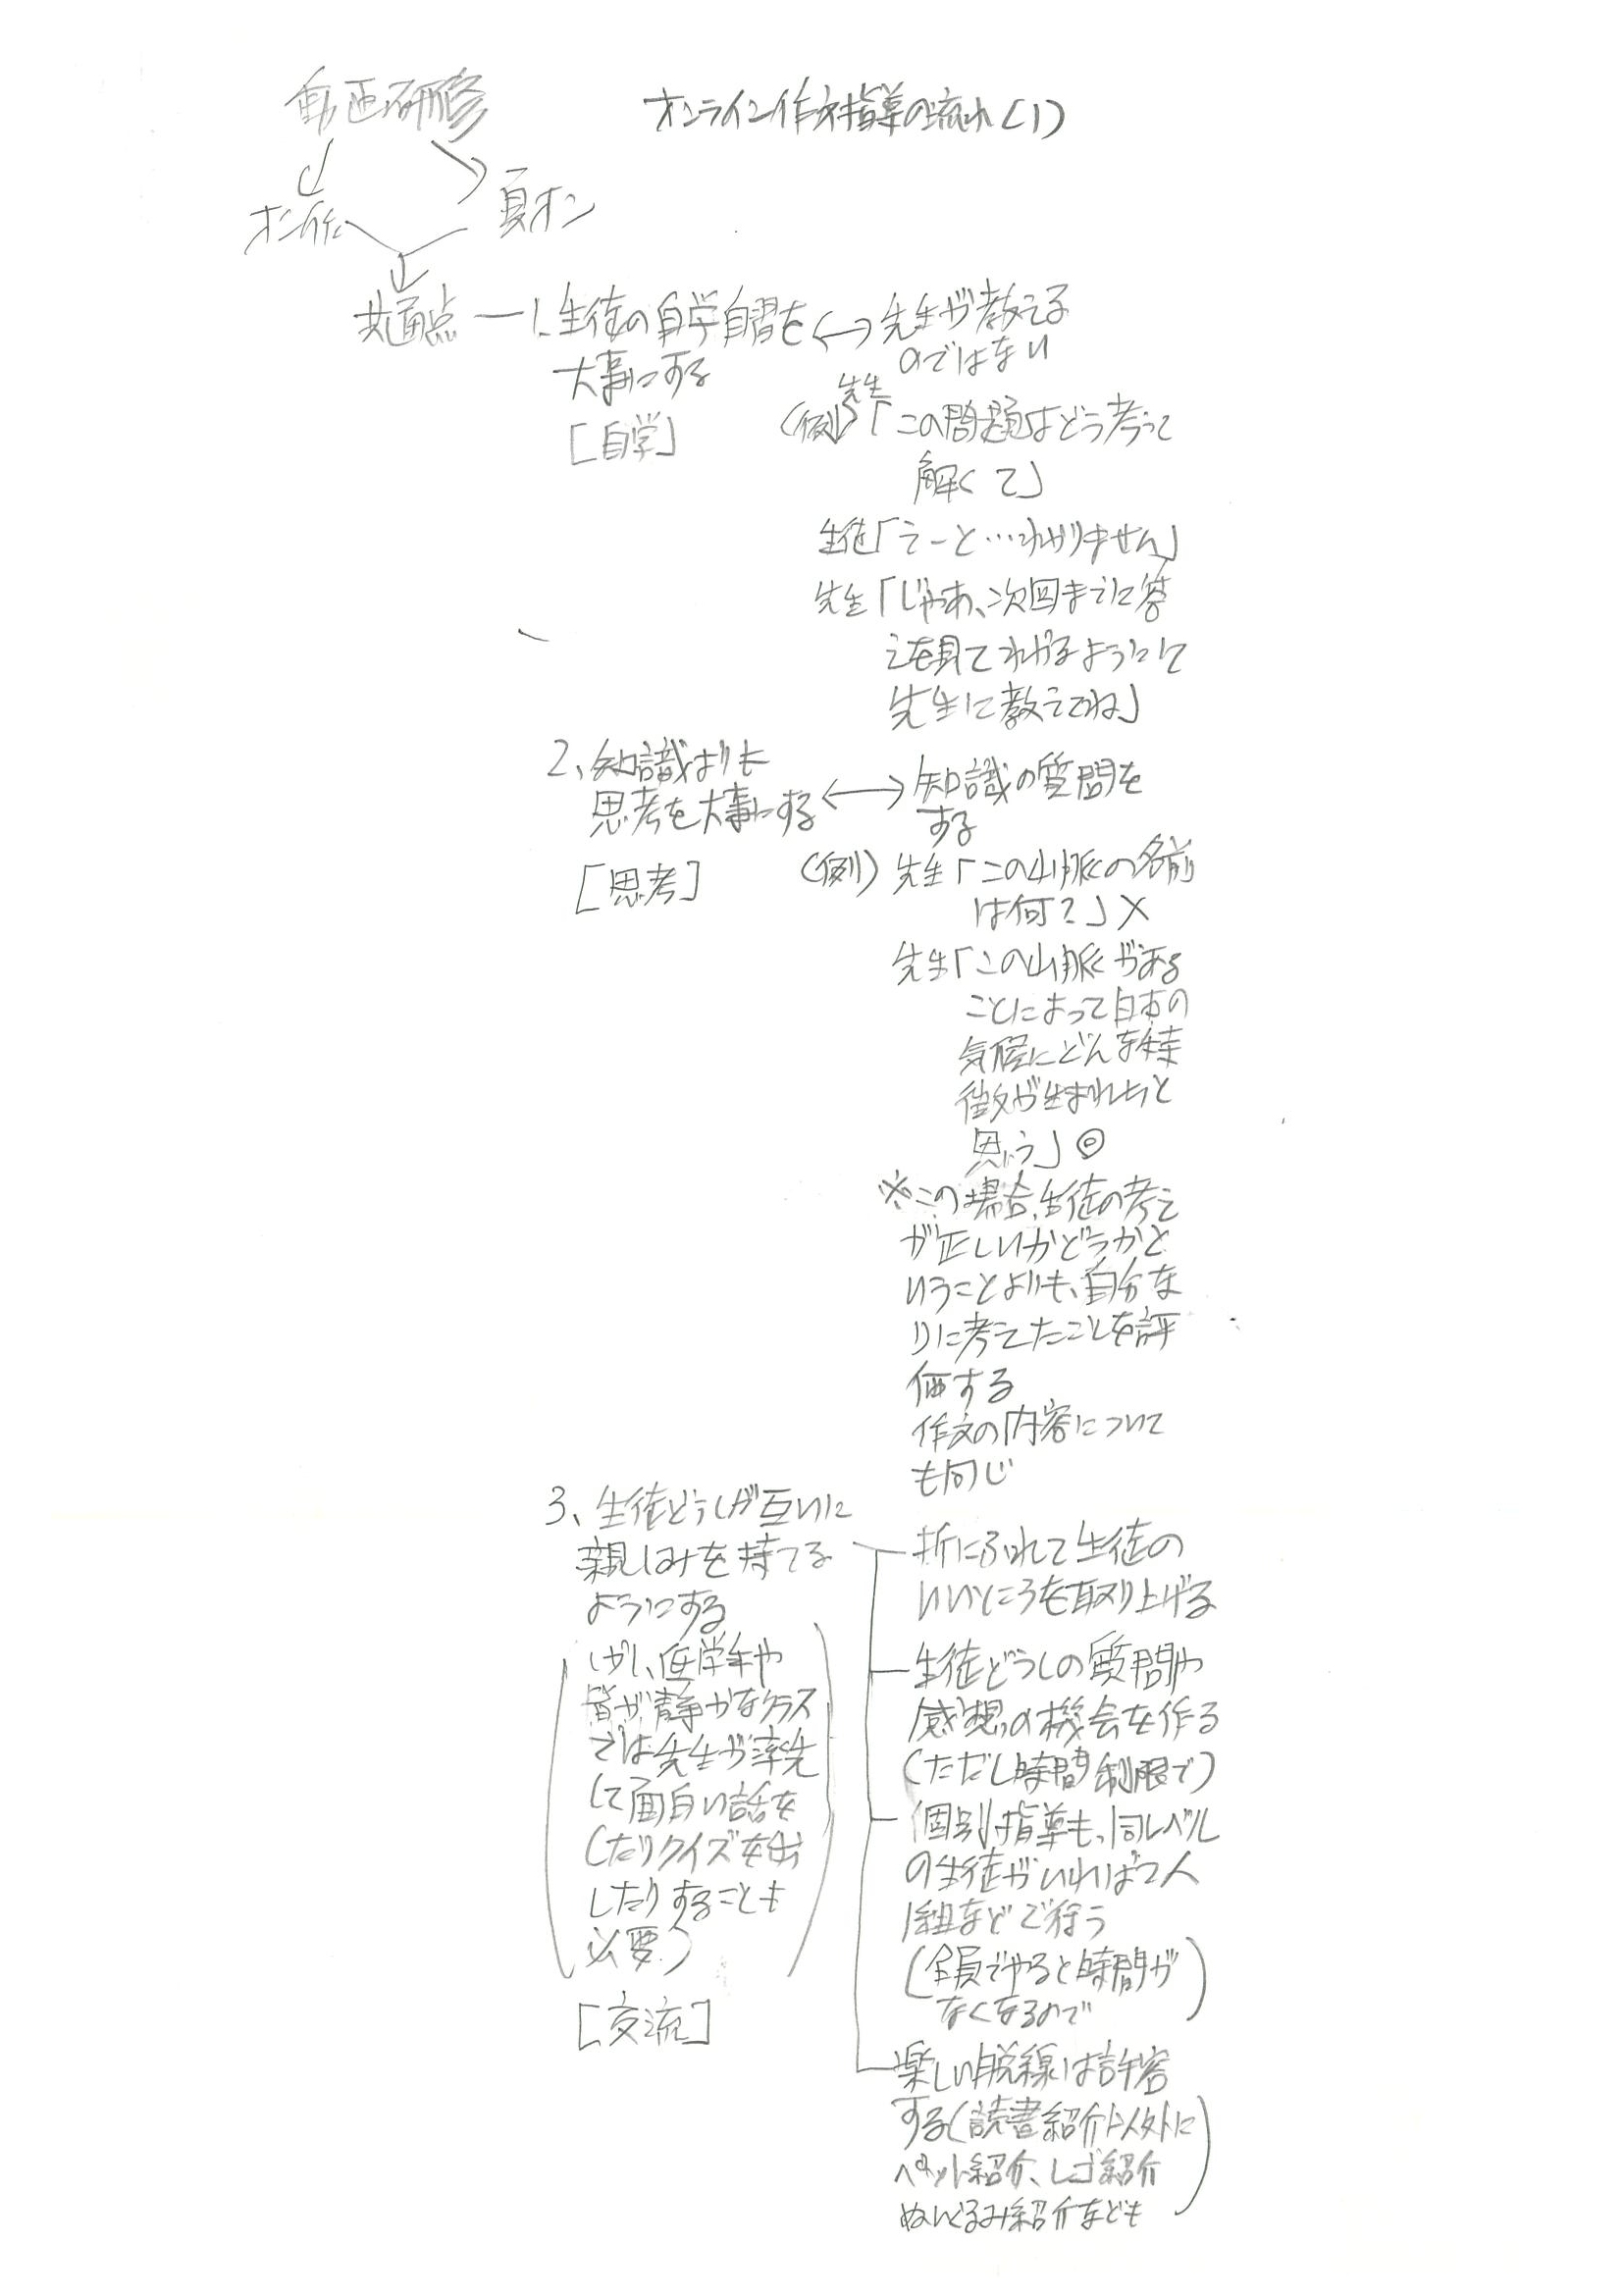 動画研修
オンライン作文指導の流れ(1)
オン作
夏オン
共通点
1、生徒の自学自習を
大事にする
[自学]
先生が教える
のではない
(例)先生「この問題はどう考って
解くて」
生徒「えーと…わかりません」
先生「じゃあ、次回までに答
えを見てわかるようにして
先生に教えてね」
2、知識よりも
思考を大事にする
[思考]
知識の質問を
する
(例)先生「この山脈の名前
は何?」×
先生「この山脈がある
ことによって日本の
気候にどんな特
徴が生まれたと
思う」◎
※この場合、生徒の考え
が正しいかどうかと
いうことよりも、自分な
りに考えたことを評
価する
作文の内容について
も同じ
3、生徒どうしが互いに
親しみを持てる
ようにする
(しかし、低学年や
皆が静かなクラス
では先生が率先
して面白い話を
したりクイズを出
したりすることも
必要)
[交流]
折にふれて生徒の
いいところを取り上げる
生徒どうしの質問や
感想の機会を作る
(ただし時間制限で)
個別指導も、同レベル
の生徒がいれば2人
1組などで行う
(全員でやると時間が
なくなるので)
楽しい脱線は許容
する(読書紹介以外に
ペット紹介、レゴ紹介
ぬいぐるみ紹介なども)